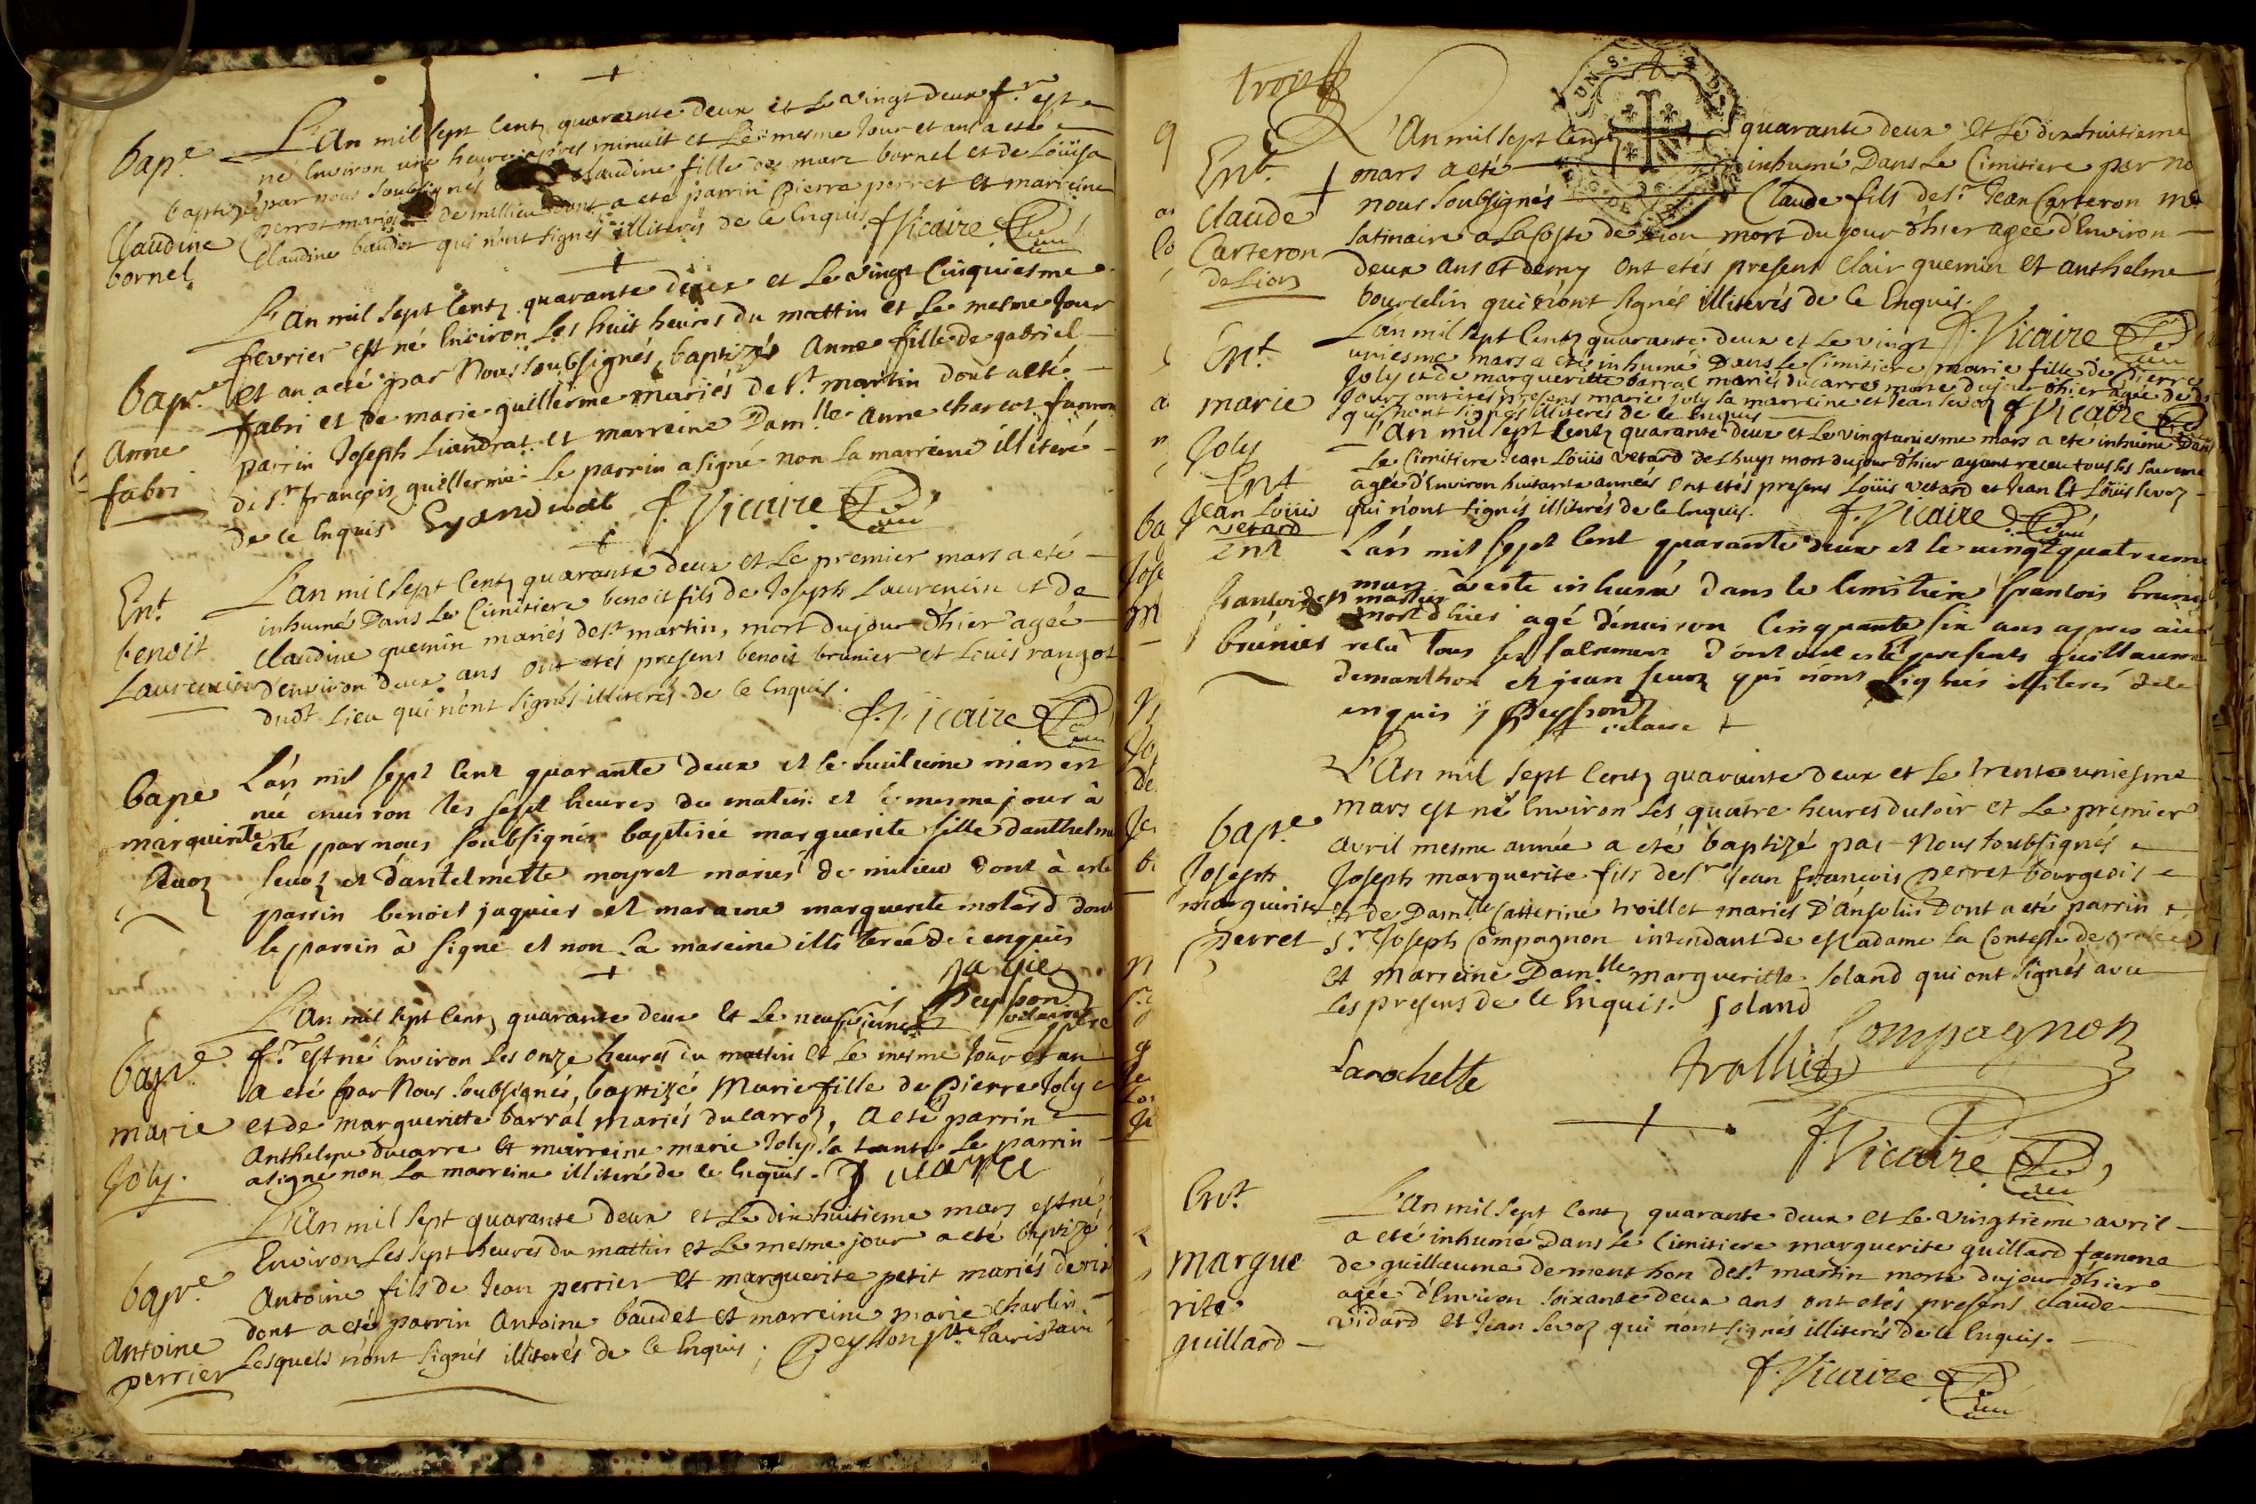 bap.e
Claudine
bornel
L'An mil sept Centz quarante deux et Le vingt deux f.r est
né Environ une heure apres minuit et Le mesme Jour et an a eté
baptizé par nous soubsignés Claudine fille de marc bornel et de Loüisa
perrot mariés de millieu dont a eté parrin pierre perret et marreine
Claudine baudet qui n'ont signés illiterés de ce Enquis f Vicaire
bap.e
Anne
fabri
L'an mil sept Centz quarante deux et Le vingt Cinquiesme
fevrier est né Environ Les huit heures du mattin et Le mesme Jour
et an a eté par Nous soubsignés, baptizés Anne fille de gabriel
fabri et de marie guillerme mariés de s.t martin dont a eté
parrin Joseph Liandrat et marreine Dam.lle Anne charcot famme
de s.r françois guillerme Le parrin a signé non La marreine illiteré
de ce Enquis Lyandrat f. Vicaire
Ent.
benoit
Laurencin
L'an mil sept Centz quarante deux et Le premier mars a eté
inhumé Dans Le Cimitiere benoit fils de Joseph Laurencin et de
Claudine guemin mariés de s.t martin, mort du jour d'hier agée
d'environ deux ans ont etés presens benoit brunier et Louis rangot
dudt Lieu qui n'ont signés illiterés de ce Enquis.
f. Vicaire
bape
marguerite
sevoz
L'an mil sept Cent quarante deux et le huitieme mars est
née environ les sept heures du matin et le mesme jour à
esté par nous soubsignés baptisée marguerite fille danthelme
sevoz et d'antelmette moyret mariés de milieu dont à esté
parrin benoit jaquier et maraine marguerite molard dont
le parrin à signé et non la mareine illiterée de ce enquis
jaque
peysson
vicaire
L'an mil sept Centz quarante deux et Le neufviesme
bap.e
marie
Joly.
f.r est né Environ Les onze heures du mattin et Le mesme Jour et an
a eté par Nous soubsignés, baptizé Marie fille de pierre Joly
et de margueritte barral mariés du carroz, a eté parrin
Anthelme ducarre et marreine marie Joly sa tante Le parrin
a signé non La marreine illiteré de ce Enquis.
bap.e
Antoine
perrier
L'An mil sept quarante deux et Le dix huitieme mars est né
Environ Les sept heures du mattin et Le mesme jour a eté baptizé
Antoine fils de Jean perrier et marguerite petit mariés de
dont a eté parrin Antoine baudet et marreine marie charlin
Lesquels n'ont signés illiterés de ce Enquis. peysson
trois
Ent.
Claude
Carteron
de Lion
L'An mil sept Centz quarante deux et Le dix huitieme
mars a eté inhumé Dans Le Cimitiere par no
nous soubsignés Claude fils de s.r Jean Carteron me
satinaire a La Coste de Lion mort du jour d'hier agée d'Environ
deux ans et demy ont etés present Clair guemin et anthelme
bourcelin qui n'ont signés illiterés de ce Enquis.
f. Vicaire
Ent.
marie
Joly
L'an mil sept Centz quarante deux et Le vingt
uniesme mars a eté inhumé Dans Le Cimitiere marie fille de pierre
Joly et de margueritte barral mariés du carre morte du jour d'hier agée de
Jours ont etés presens marie Joly sa marreine et Jean sevoz
qui n'ont signés illiterés de ce Enquis f Vicaire
Ent
Jean Loüis
vetard
L'An mil sept Centz quarante deux et Le vingt uniesme mars a eté inhumé Dans
Le Cimitiere Jean Loüis vetard de Lhuys mort du jour d'hier ayant receu tous les sacreme
agée d'Environ huitante années ont etés presens Loüis vetard et Jean Loüis sevoz
qui n'ont signés illiterés de ce Enquis. f. Vicaire
Ent
francois
brunier
L'an mil sept Cent quarante deux et le vingt quatrieme
mars à esté inhumé dans le Cimitiere francois brunier
mort dhier agé d'environ Cinquante six ans apres avoir
recu tous ses sacremens d'ont ont esté presents guillaume
demanthon et jean sevoz qui n'ont signés illiterés de ce
enquis peysson
vicaire
bap.e
Joseph
marguerite
perret
L'An mil sept Centz quarante deux et Le trente uniesme
mars est né Environ Les quatre heures du soir et Le premier
avril mesme année a eté baptizé par Nous soubsignés
Joseph marguerite fils de s.r Jean françois perret bourgeois
et de Dam.lle Catterine trollet mariés D'Anselin Dont a eté parrin
s.r Joseph Compagnon intendant de Madame La Contesse de
et Marreine Dam.lle margueritte Soland qui ont signés avec
Les presens de ce Enquis. Soland
Compagnon
Larochette trolliet
f. Vicaire
Ent.
Margue
rite
guillard
L'An mil sept Centz quarante deux et Le vingtieme avril
a eté inhumé Dans Le Cimitiere marguerite guillard famme
de guillaume dementhon de s.t martin morte du jour d'hier
agée d'Environ soixante deux ans ont etés presens claude
vidard et Jean sevoz qui n'ont signés illiterés de ce Enquis.
f. Vicaire